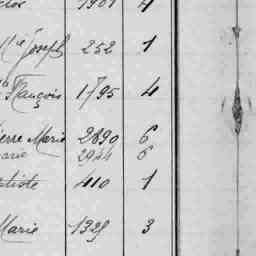 1901 4
Mie Joseph 252 1
François 1795 4
erre Marie 2890 6
arie 2944 6
ptiste 410 1
Marie 1325 3